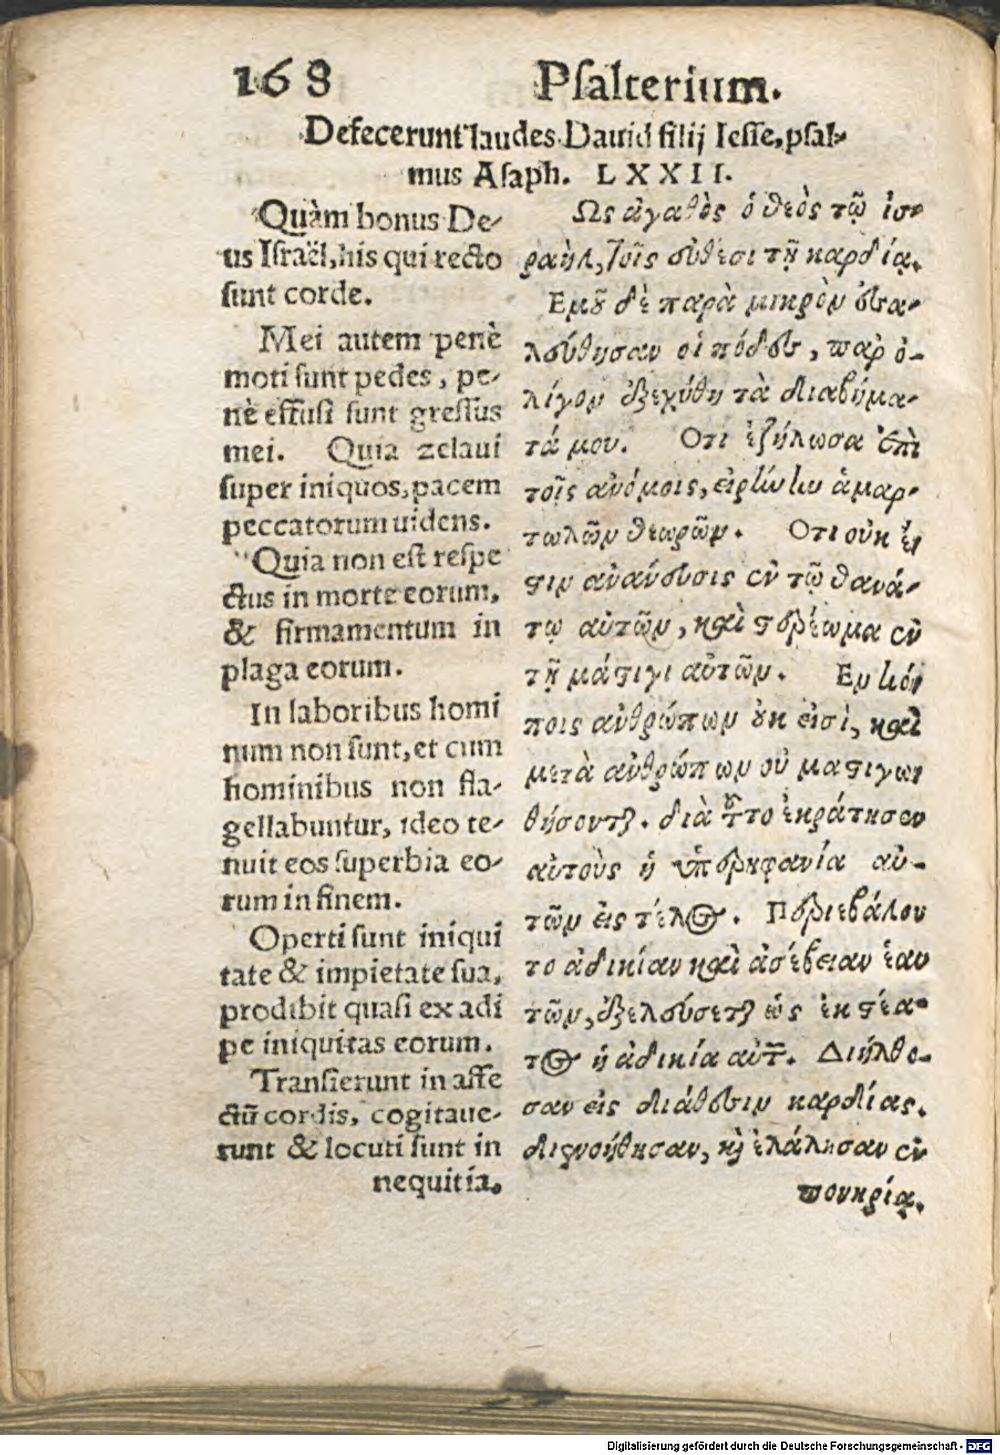 168 Psalterium.
Defecerunt laudes Dauid filij Iesse, psal-
mus Asaph. LXXII.
Quàm bonus De-
us Israël, his qui recto
sunt corde.
Mei autem penè
moti sunt pedes, pe-
nè effusi sunt gressus
mei. Quia zelaui
super iniquos, pacem
peccatorum uidens.
Quia non est respe
ctus in morte eorum,
& firmamentum in
plaga eorum.
In laboribus homi
num non sunt, et cum
hominibus non fla-
gellabuntur, ideo te-
nuit eos superbia eo-
rum in finem.
Operti sunt iniqui
tate & impietate sua,
prodibit quasi ex adi
pe iniquitas eorum.
Transierunt in affe
ctū cordis, cogitaue-
runt & locuti sunt in
nequitia.
Ως ἀγαθὸς ὁ θεὸς τῷ ἰσ-
ραὴλ, τοῖς εὐθέσι τῇ καρδίᾳ.
Εμοῦ δὲ παρὰ μικρὸν ἐσα-
λεύθησαν οἱ πόδες, παρ ὀ-
λίγον ἐξεχύθη τὰ διαβήμα-
τά μου. Οτι ἐζήλωσα ἐπὶ
τοῖς ἀνόμοις, εἰρήνην ἁμαρ-
τωλῶν θεωρῶν. Οτι οὐκ ἔ
στιν ἀνάνευσις ἐν τῷ θανά-
τῳ αὐτῶν, καὶ στερέωμα ἐν
τῇ μάστιγι αὐτῶν. Εν κό
ποις ἀνθρώπων οὐκ εἰσὶ, καὶ
μετὰ ἀνθρώπων οὐ μαστιγω
θήσονται. διὰ τοῦτο ἐκράτησεν
αὐτοὺς ἡ ὑπερηφανία αὐ-
τῶν εἰς τέλος. Περιεβάλον
το ἀδικίαν καὶ ἀσέβειαν ἑαυ
τῶν, ἐξελεύσεται ὡς ἐκ στέα-
τος ἡ ἀδικία αὐτῶν. Διήλθο-
σαν εἰς διάθεσιν καρδίας.
διενοήθησαν, καὶ ἐλάλησαν ἐν
πονηρίᾳ.
Digitalisierung gefördert durch die Deutsche Forschungsgemeinschaft - DFG